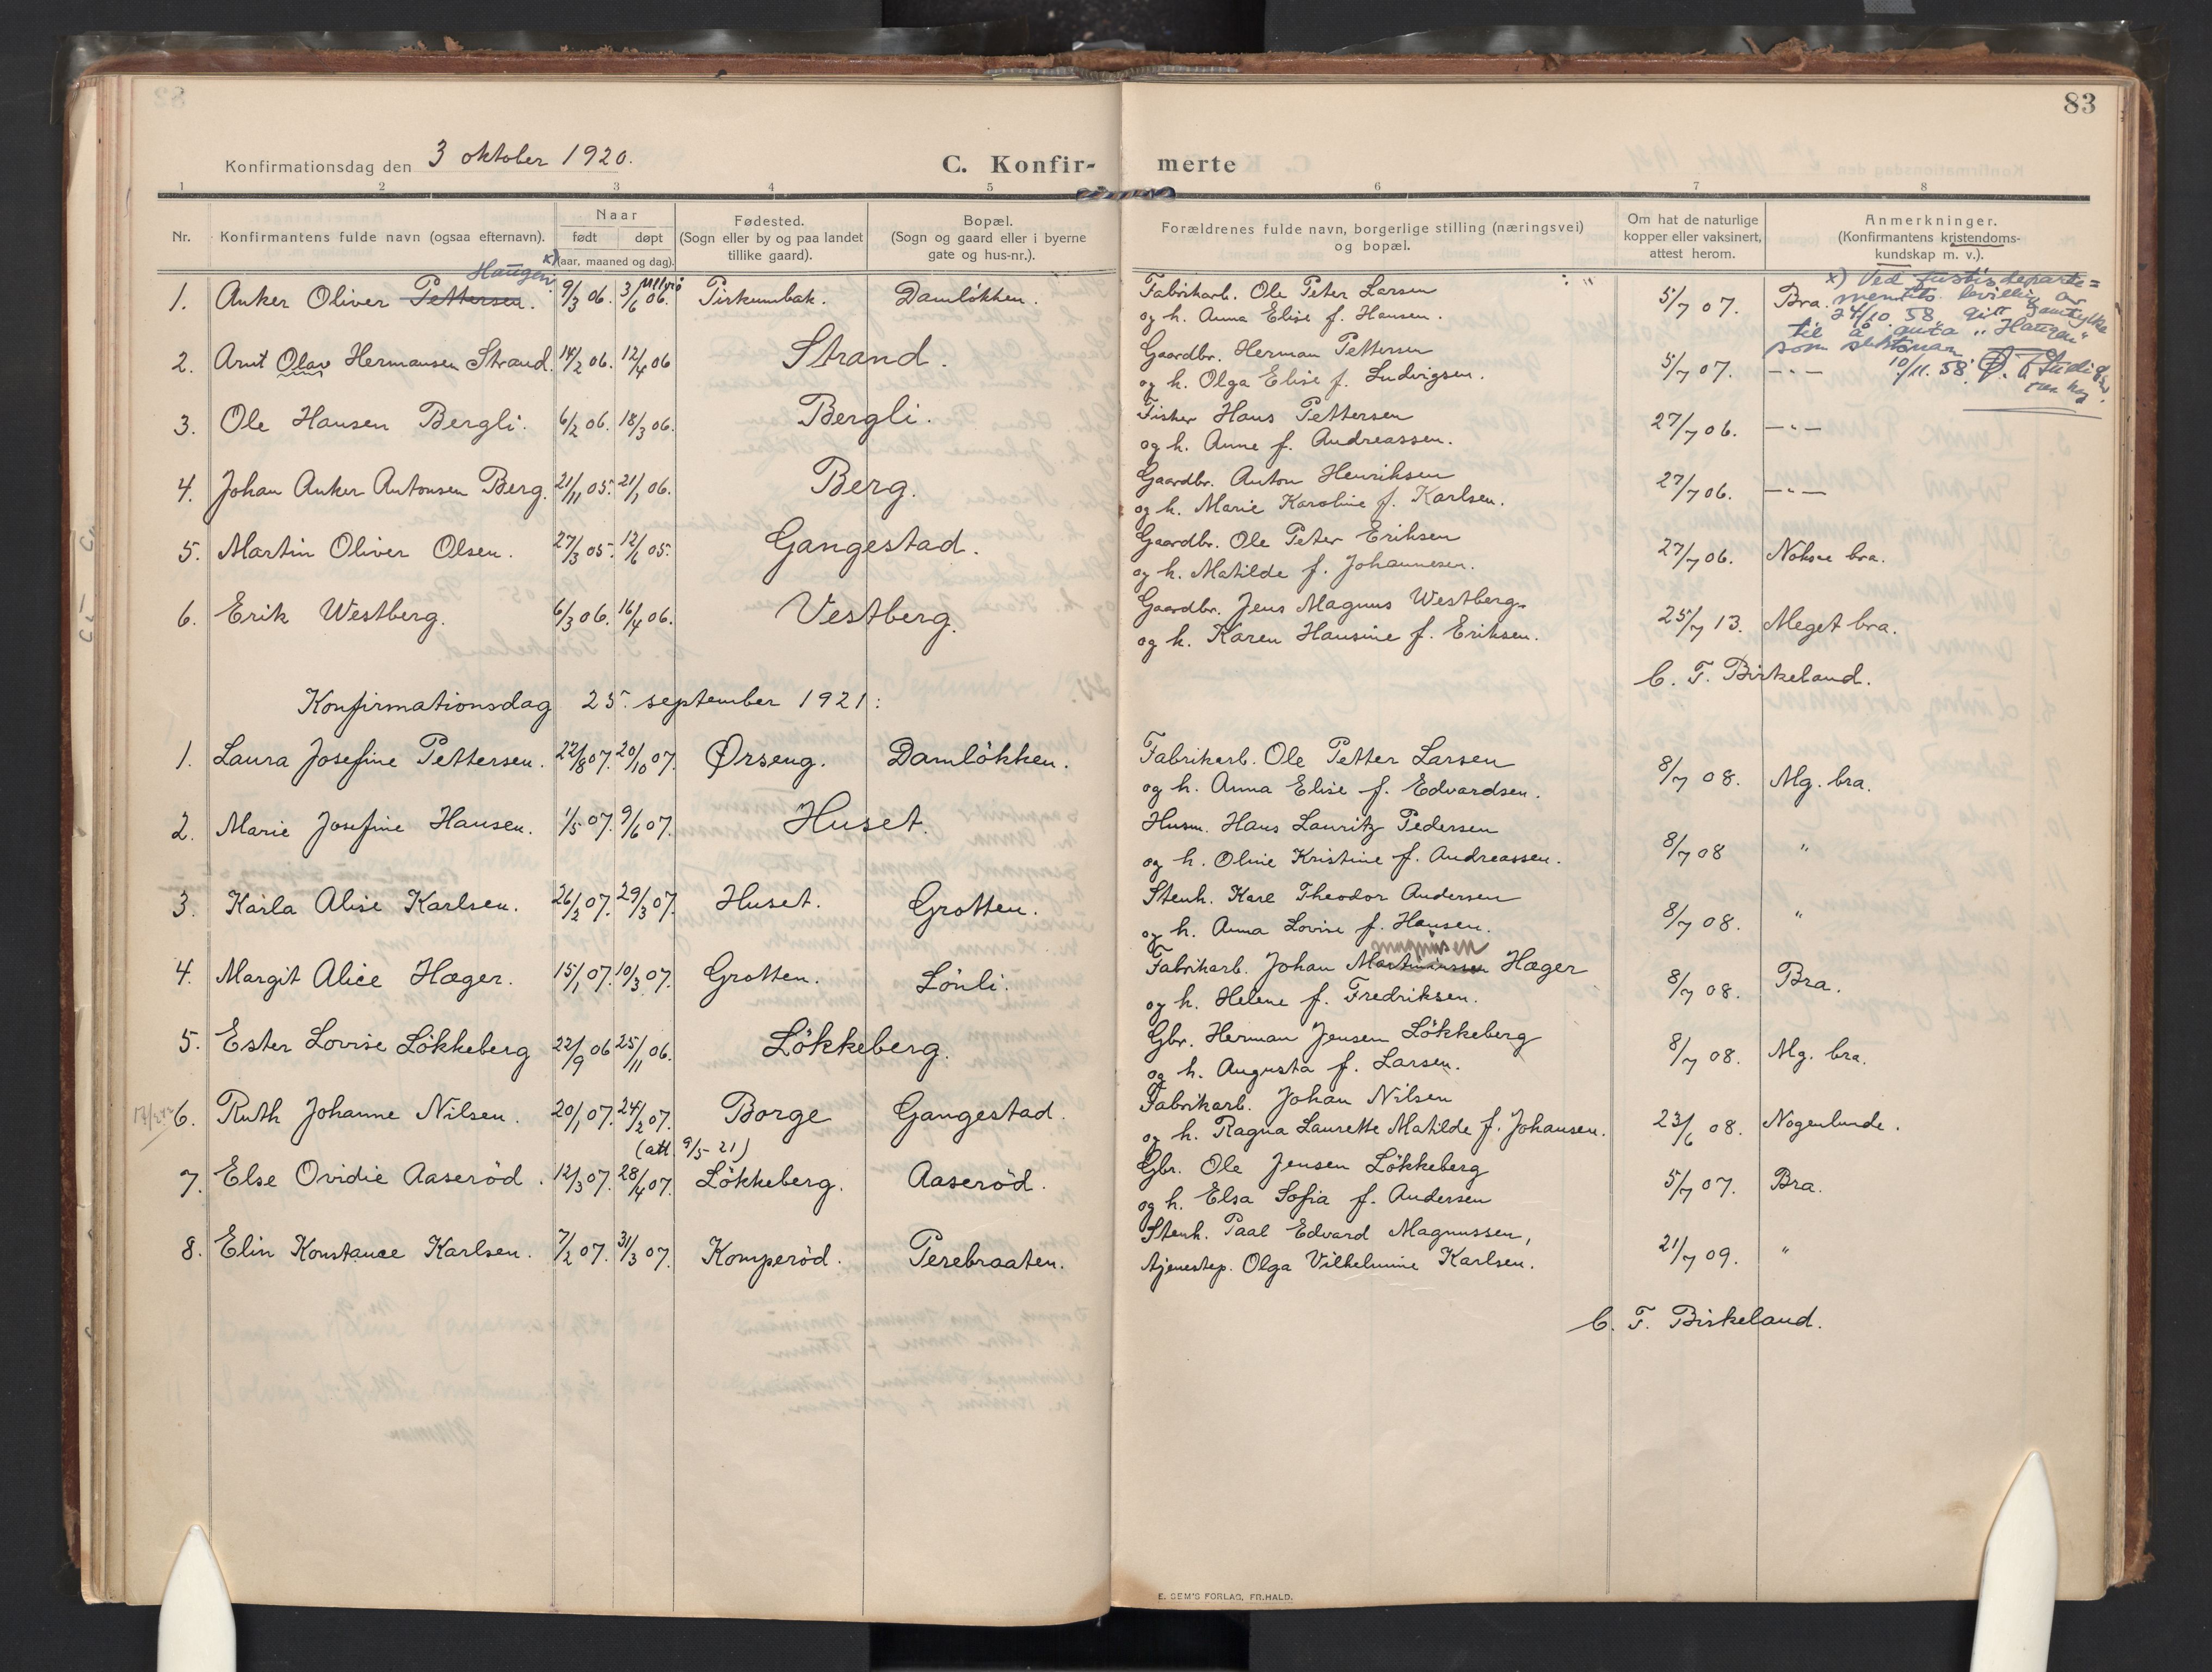 83
Konfirmationsdag den 3 oktober 1920.
C. Konfir- merte
1 2 3 4 5 6 7 8
Nr.
Konfirmantens fulde navn (ogsaa efternavn).
Naar
født døpt
(aar, maaned og dag).
Fødested.
(Sogn eller by og paa landet
tillike gaard).
Bopæl.
(Sogn og gaard eller i byerne
gate og hus-nr.).
Forældrenes fulde navn, borgerlige stilling (næringsvei)
og bopæl.
Om hat de naturlige
kopper eller vaksinert,
attest herom.
Anmerkninger.
(Konfirmantens kristendoms-
kundskap m. v.).
Haugen x)
1. Anker Oliver Pettersen. 9/3 06. 3/6 06. Pirkumbak. Damlökken. Fabrikarb. Ole Peter Larsen 5/7 07. Bra.
og h. Anna Elise f. Hansen.
x) Ved Justisdeparte=
mentets bevilling av
24/10 58 gitt samtykke
til å anta "Haugen"
som slektsnavn
10/11. 58.
2. Arnt Olav Hermansen Strand. 14/2 06. 12/4 06 Strand. Gaardbr. Herman Pettersen 5/7 07. -"-
og h. Olga Elise f. Ludvigsen.
3. Ole Hansen Bergli. 6/2 06. 18/3 06. Bergli. Fisker Hans Pettersen 27/7 06. -"-
og h. Anne f. Andreassen.
4. Johan Anker Antonsen Berg. 21/11 05. 21/1 06. Berg. Gaardbr. Anton Henriksen 27/7 06. -"-
og h. Marie Karoline f. Karlsen.
5. Martin Oliver Olsen. 27/3 05. 12/6 05. Gangestad. Gaardbr. Ole Peter Eriksen 27/7 06. Nokso bra.
og h. Matilde f. Johannesen.
6. Erik Westberg. 6/3 06. 16/4 06. Vestberg. Gaardbr. Jens Magnus Westberg 25/7 13. Meget bra.
og h. Karen Hansine f. Eriksen.
C. F. Birkeland.
Konfirmationsdag 25. september 1921:
1. Laura Josefine Pettersen. 22/8 07. 20/10 07. Ørseng. Damlökken. Fabrikarb. Ole Petter Larsen 8/7 08. Mg. bra.
og h. Anna Elise f. Edvardsen.
2. Marie Josefine Hansen. 1/5 07. 9/6 07. Huset. Husm. Hans Lauritz Pedersen 8/7 08 "
og h. Oline Kristine f. Andreassen.
3. Karla Alise Karlsen. 26/2 07. 29/3 07. Huset. Grotten. Stenh. Karl Theodor Andersen 8/7 08. "
og h. Anna Lovise f. Hansen.
Magnussen
4. Margit Alice Hæger. 15/1 07. 10/3 07. Grotten. Lönli. Fabrikarb. Johan Martinussen Hæger 8/7 08. Bra.
og h. Helene f. Fredriksen.
5. Ester Lovise Lökkeberg 22/9 06 25/11 06. Lökkeberg. Gbr. Herman Jensen Lökkeberg 8/7 08. Mg. bra.
og h. Augusta f. Larsen.
6. Ruth Johanne Nilsen. 20/1 07. 24/2 07. Borge Gangestad. Fabrikarb. Johan Nilsen 23/6 08. Nogenlunde.
og h. Ragna Laurette Matilde f. Johansen.
(att. 9/5-21)
7. Else Ovidie Aaseröd. 12/3 07. 28/4 07. Lökkeberg. Aaseröd. Gbr. Ole Jensen Lökkeberg 5/7 07. Bra.
og h. Elsa Sofia f. Andersen
8. Elin Konstance Karlsen. 7/2 07. 31/3 07. Komperöd. Perebraaten. Stenh. Paal Edvard Magnussen, 21/7 09. "
tjenestep. Olga Vilhelmine Karlsen.
C. F. Birkeland.
E. SEM'S FORLAG, FR.HALD.